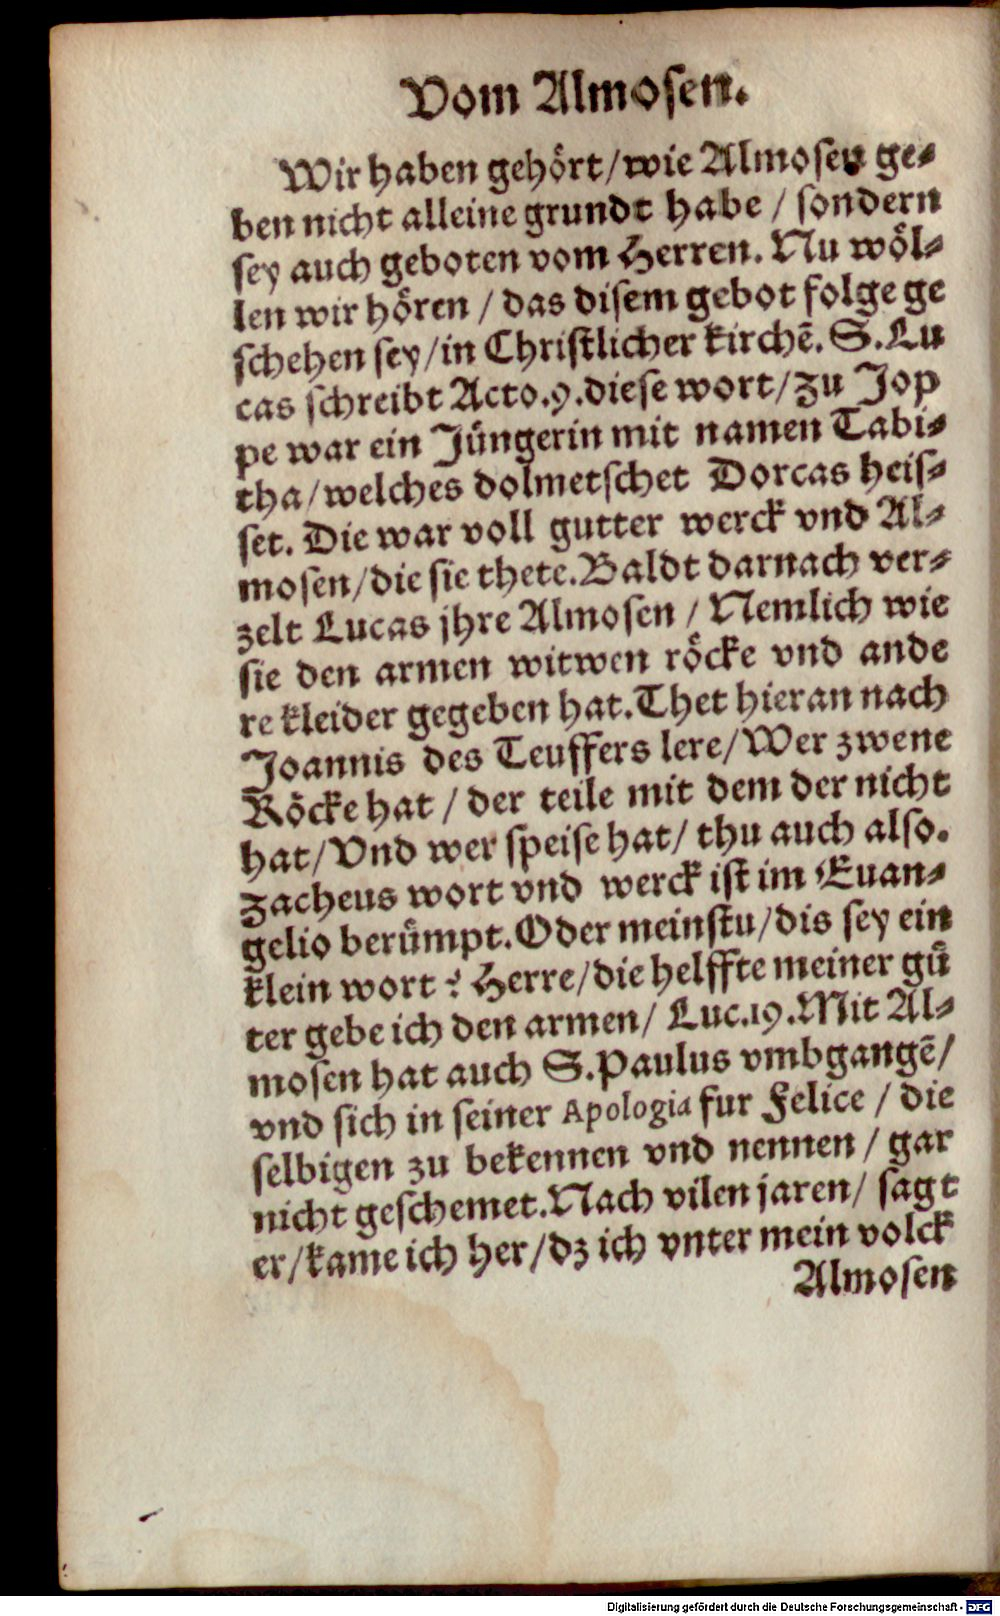 Vom Almosen.
Wir haben gehört/wie Almosen ge-
ben nicht alleine grundt habe / sondern
sey auch geboten vom Herren. Nu wöl-
len wir hören / das disem gebot folge ge
schehen sey/in Christlicher kirchē. S.Lu
cas schreibt Acto.9.diese wort/zu Jop
pe war ein Jüngerin mit namen Tabi-
tha/welches dolmetschet Dorcas heis-
set. Die war voll gutter werck vnd Al-
mosen/die sie thete.Baldt darnach ver-
zelt Lucas jhre Almosen / Nemlich wie
sie den armen witwen röcke vnd ande
re kleider gegeben hat.Thet hieran nach
Joannis des Teuffers lere/Wer zwene
Röcke hat / der teile mit dem der nicht
hat/Vnd wer speise hat/ thu auch also.
Zacheus wort vnd werck ist im Euan-
gelio berümpt.Oder meinstu/dis sey ein
klein wort? Herre/die helffte meiner gü
ter gebe ich den armen/ Luc.19.Mit Al-
mosen hat auch S.Paulus vmbgangē/
vnd sich in seiner Apologia fur Felice / die
selbigen zu bekennen vnd nennen / gar
nicht geschemet.Nach vilen jaren/ sagt
er/kame ich her/dz ich vnter mein volck
Almosen
Digitalisierung gefördert durch die Deutsche Forschungsgemeinschaft - DFG